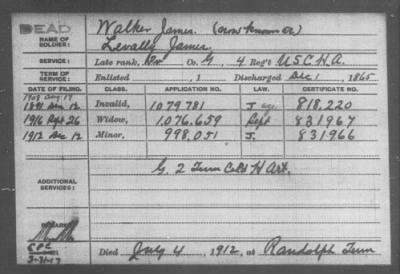 DEAD
NAME OF SOLDIER: Walker James.
Levally James.
SERVICE: Late rank, Co. G, 4 Reg't U.S.C.H.A.
TERM OF SERVICE: Enlisted , 1 Discharged Dec 1 , 1865
DATE OF FILING. CLASS. APPLICATION NO. LAW. CERTIFICATE NO.
1908 Aug 18
Invalid, 1079781 818,220
1916 Sept 26 Widow, 1,076.659 Sept 831967
1912 Dec 12 Minor, 998,051 831966
ADDITIONAL SERVICES: G. 2 Tenn Cold H Art.
REMARKS:
3-31-17
Died July 4 , 1912, at Randolph Tenn